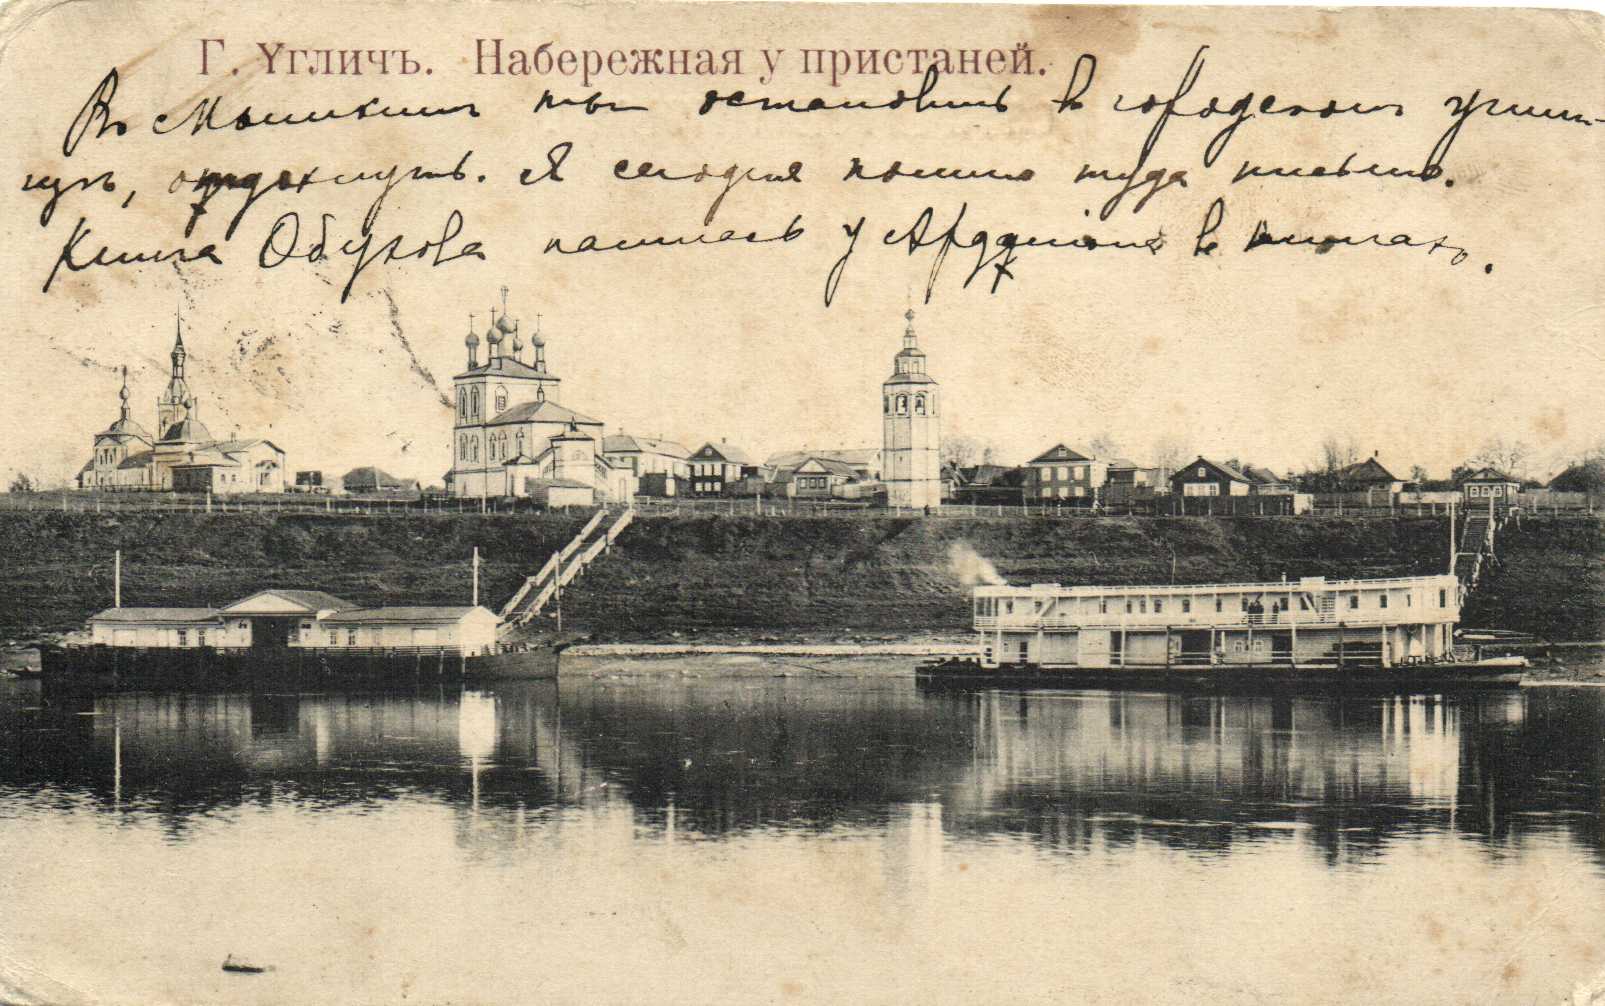 Г. Угличъ. Набережная у пристаней.
Въ Мышкинѣ ты остановишь в городском учили-
щѣ, отдохнуть. Я сегодня пошлю туда письмо.
Книга Обухова нашлась у в книгах.